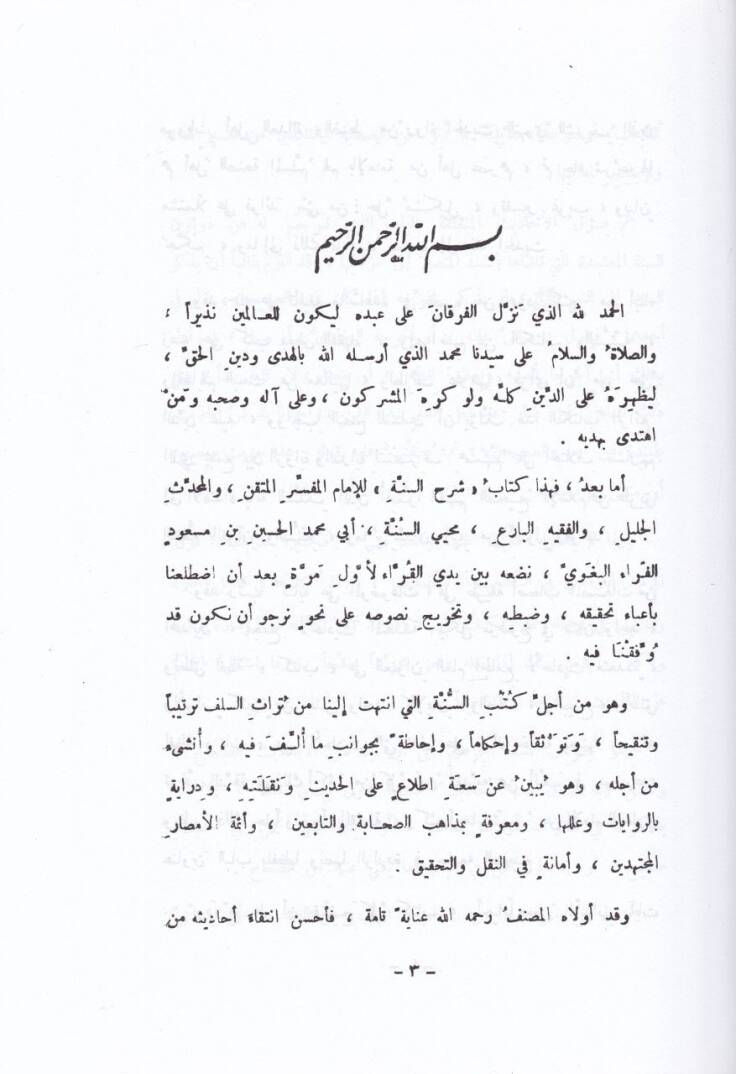 بسم الله الرحمن الرحيم
الحمد لله الذي نَزَّل الفرقانَ على عبده ليكون للعالمين نذيراً ،
والصلاةُ والسلامُ على سيدنا محمد الذي أرسله الله بالهدى ودينِ الحقِّ ،
ليُظهرَهُ على الدِّينِ كلِّه ولو كرِهَ المشركون ، وعلى آله وصحبه ومَنْ
اهتدى بهديه .
أما بعدُ ، فهذا كتابُ « شرح السنَّةِ » للإمام المفسِّرِ المتقن ، والمحدِّثِ
الجليلِ ، والفقيه البارعِ ، محيي السُّنَّةِ ، أبي محمد الحسينِ بنِ مسعودٍ
الفراء البغَويِّ ، نضعه بين يدي القُرَّاء لأوَّلِ مَرَّةٍ بعد أن اضطلعنا
بأعباء تحقيقه ، وضبطه ، وتخريجِ نصوصه على نحوٍ نرجو أن نكون قد
وُفِّقْنَا فيه .
وهو من أجلِّ كُتُبِ السُّنَّةِ التي انتهت إلينا من تُراثِ السلفِ ترتيباً
وتنقيحاً ، وتَوَثُّقاً وإحكاماً ، وإحاطةً بجوانبِ ما أُلِّفَ فيه ، وأُنشىء
من أجله ، وهو يُبينُ عن سَعَةِ اطلاعٍ على الحديثِ ونَقَلَتِهِ ، ودِرايةٍ
بالروايات وعللِها ، ومعرفةٍ بمذاهب الصحابة والتابعين ، وأئمة الأمصارِ
المجتهدين ، وأمانةٍ في النقل والتحقيق .
وقد أولاه المصنفُ رحمه الله عنايةً تامةً ، فأحسن انتقاءَ أحاديثه من
- ٣ -